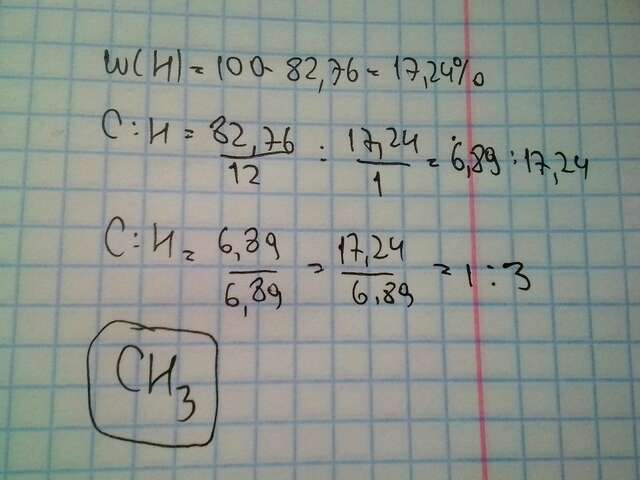 W(H) = 100 - 82,76 = 17,24%
C : H = 82,76/12 : 17,24/1 = 6,89 : 17,24
C : H = 6,89/6,89 = 17,24/6,89 = 1 : 3
CH₃